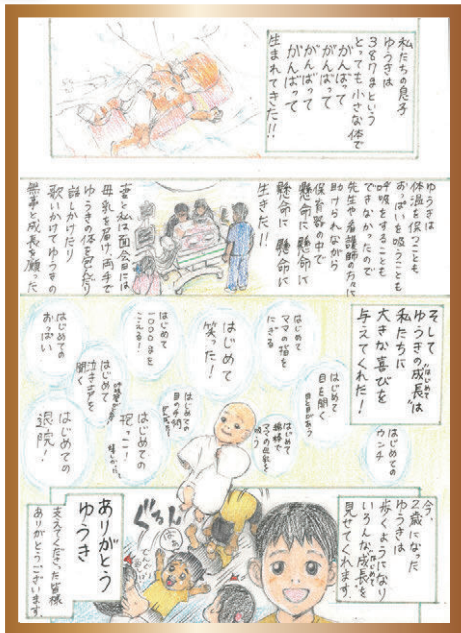 私たちの息子
ゆうきは
387gという
とっても小さな体で
がんばって
がんばって
がんばって
がんばって
生まれてきた!!
ゆうきは
体温を保つことも
おっぱいを吸うことも
呼吸をすることも
できなかったので
先生や看護師の方々に
助けられながら
保育器の中で
懸命に懸命に
懸命に懸命に
生きた!!
妻と私は面会日には
母乳を届け両手で
ゆうきの体を包んだり
話しかけたり
歌いかけてゆうきの
無事と成長を願った
そして
ゆうきの成長は
はじめて
私たちに
大きな喜びを
与えてくれた!
はじめての
ウンチ
はじめて
目を開く
目と目があう
はじめて
綿棒で
ママの母乳を
吸う
はじめて
ママの指を
にぎる
はじめて
笑った!
はじめての
抱っこ!
はじめての
はじめて
1000gを
こえる!
はじめて
泣き声を
聞く
はじめての
おっぱい
はじめての
退院!
今、
2歳になった
ゆうきは
歩くようになり
いろんな成長を
はじめて
見せてくれます。
ぐるん
ばぁ
ありがとう
ゆうき
支えてくださった皆様
ありがとうございます。